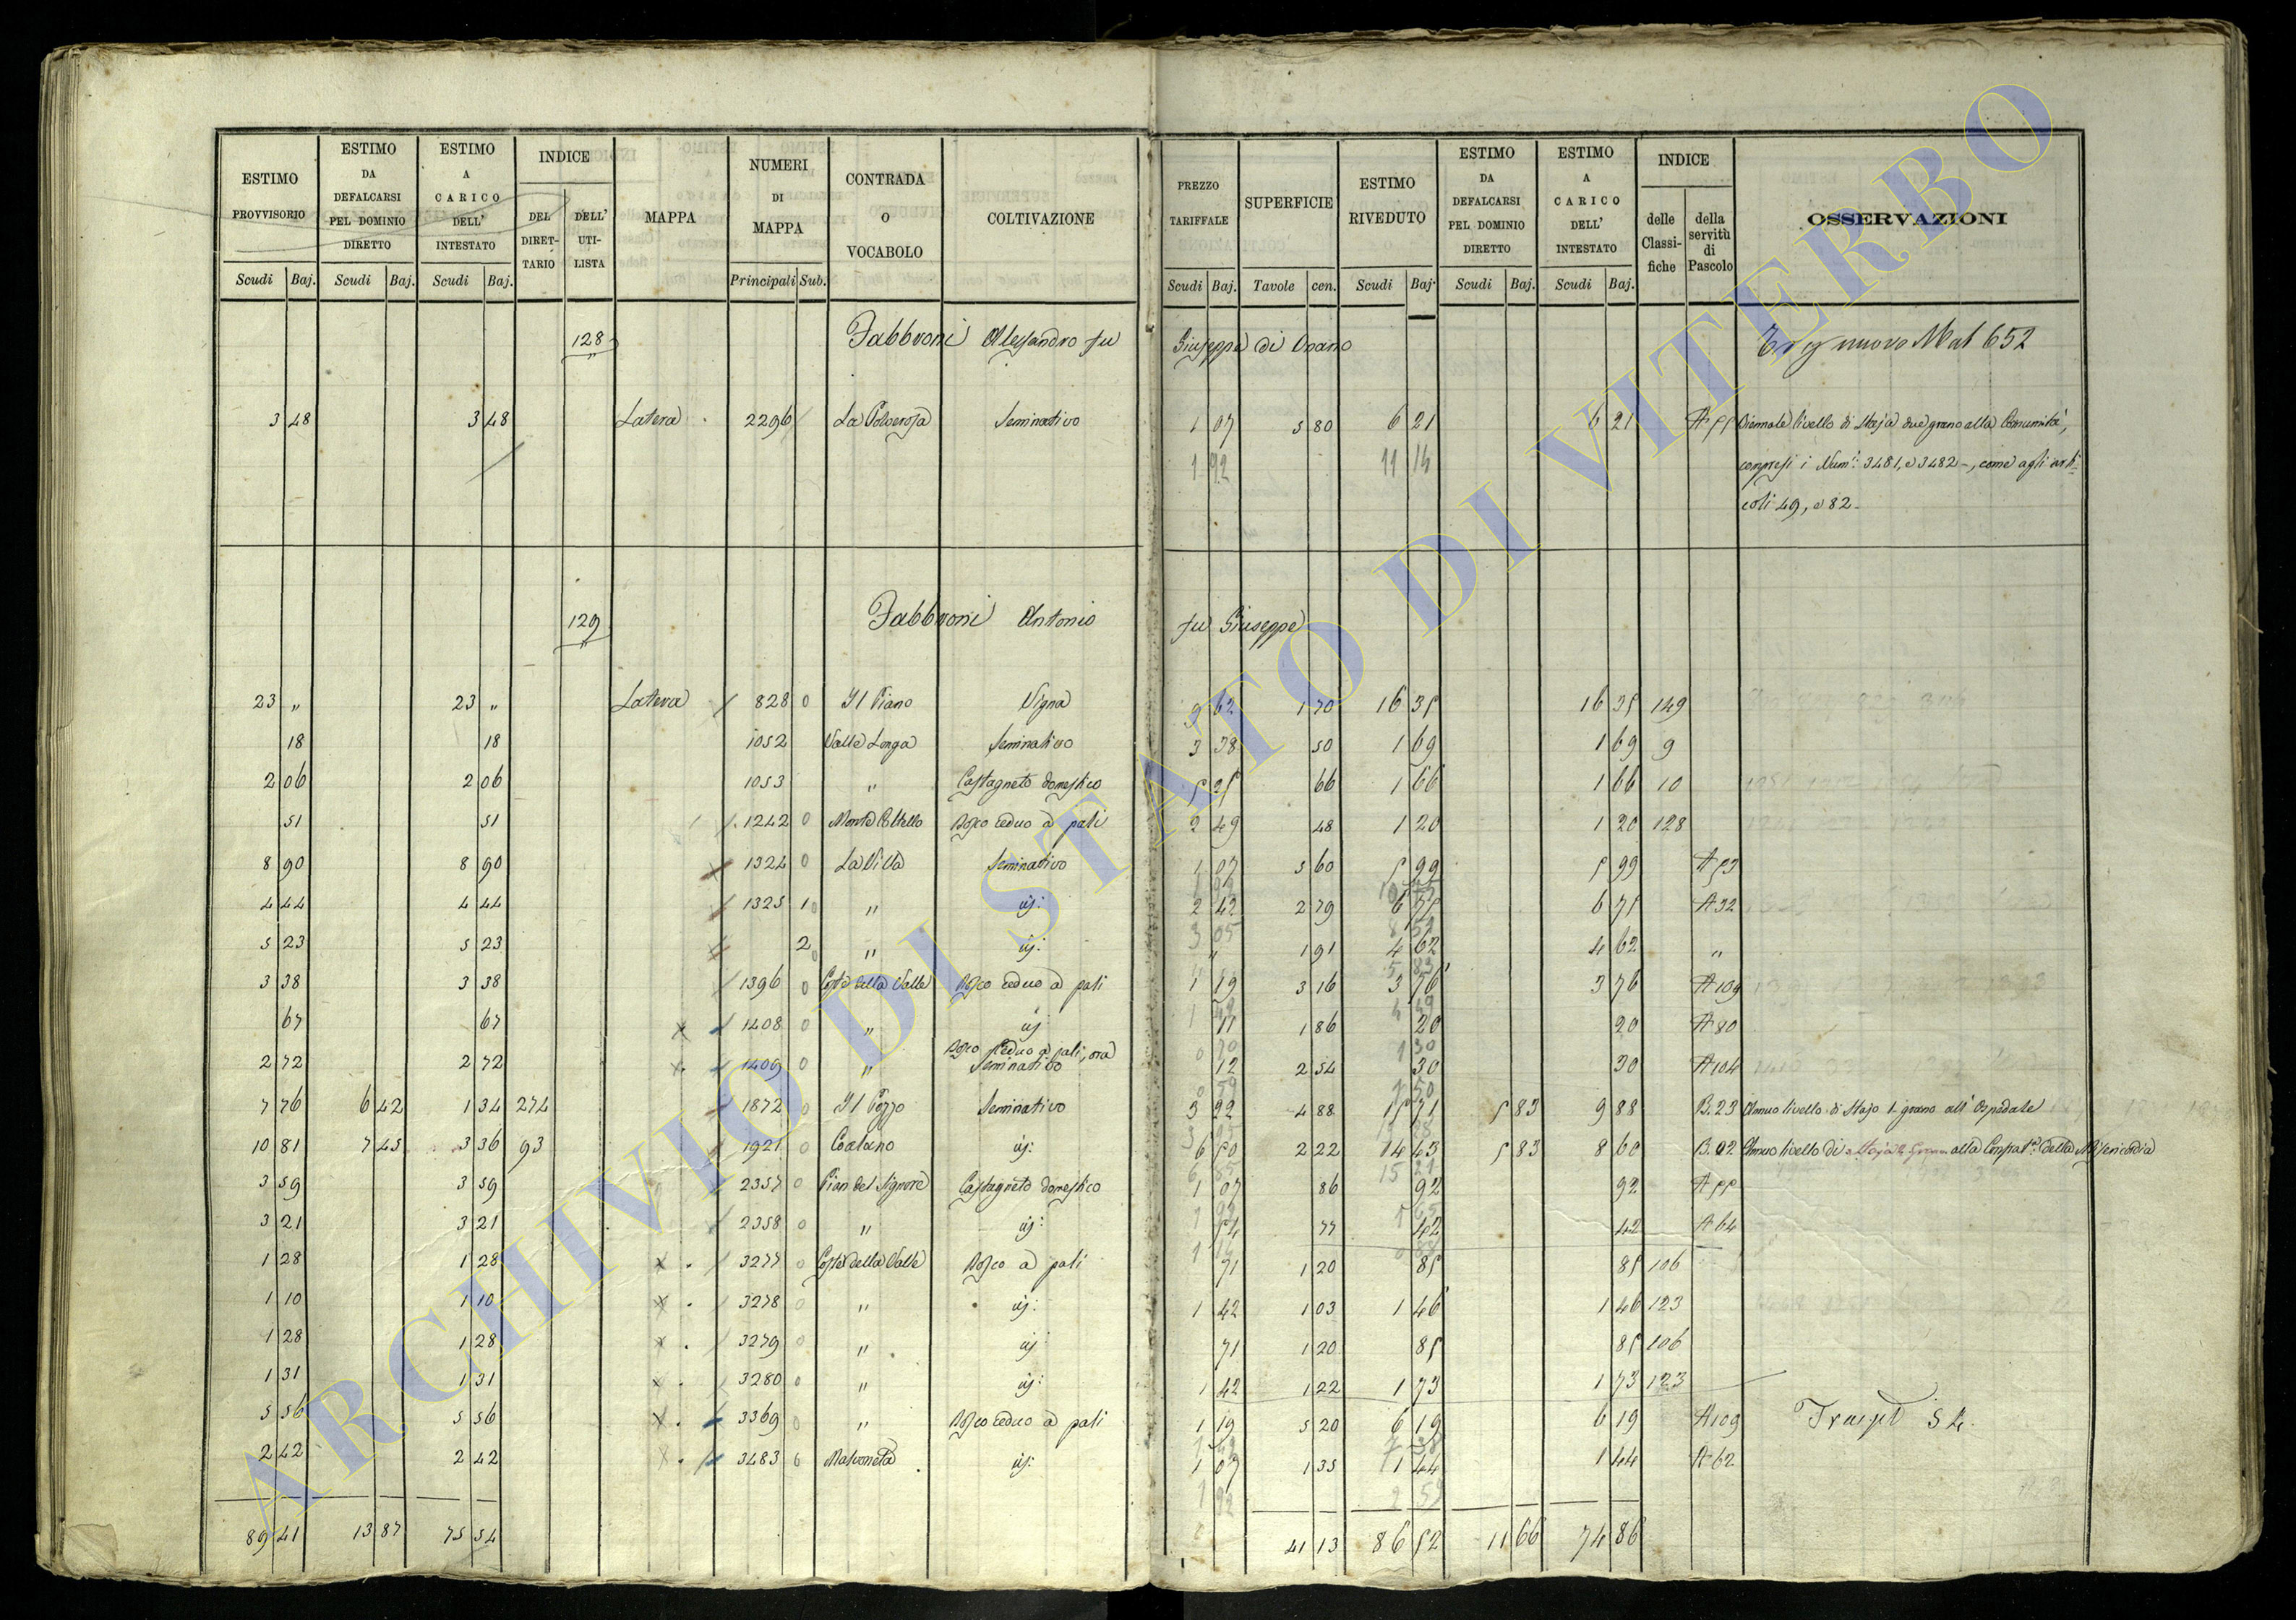 ESTIMO PROVVISORIO | ESTIMO DA DEFALCARSI PEL DOMINIO DIRETTO | ESTIMO A CARICO DELL' INTESTATO | INDICE | MAPPA | NUMERI DI MAPPA | CONTRADA O VOCABOLO | COLTIVAZIONE | PREZZO TARIFFALE | SUPERFICIE | ESTIMO RIVEDUTO | ESTIMO DA DEFALCARSI PEL DOMINIO DIRETTO | ESTIMO A CARICO DELL' INTESTATO | INDICE | OSSERVAZIONI
DEL DIRETTARIO | DELL' UTILISTA | delle Classifiche | della servitù di Pascolo
Scudi | Baj. | Scudi | Baj. | Scudi | Baj. | Principali | Sub. | Scudi | Baj. | Tavole | cen. | Scudi | Baj. | Scudi | Baj. | Scudi | Baj.
128 Fabbroni Alessandro fu Giuseppe di Onano nuovo Mat 652
3 48 3 48 Latera 2296 La Polverosa Seminativo 1 07 5 80 6 21 6 21 A 55 Biennale livello di Staja due grano alla Comunità,
1 92 11 14 compresi i Num: 3481, e 3482 -, come agli arti-
coli 49, e 82 -
129 Fabbroni Antonio fu Giuseppe
23 " 23 " Latera 828 0 Il Piano Vigna 9 62 1 70 16 35 16 35 149
18 18 1052 Valle Longa Seminativo 3 38 50 1 69 1 69 9
2 06 2 06 1053 " Castagneto domestico 66 1 66 1 66 10
51 51 1242 0 Monte Coltello Bosco ceduo a pali 2 49 48 1 20 1 20 128
8 90 8 90 1324 0 La Villa Seminativo 1 07 5 60 5 99 5 99 A 53
4 44 4 44 1325 1 0 " id: 2 42 2 79 6 75 6 75 A 32
5 23 5 23 2 0 " id: " 1 91 4 62 4 62 "
3 38 3 38 1396 0 Coste della Valle Bosco ceduo a pali 1 19 3 16 3 76 3 76 A 109
67 67 1408 0 " id: 11 1 86 20 20 A 80
2 72 2 72 1409 0 " Bosco ceduo a pali, ora Seminativo 12 2 54 30 30 A 104
7 76 6 42 1 34 274 1872 0 Il Pozzo Seminativo 3 22 4 88 15 71 5 83 9 88 B. 23 Annuo livello di Stajo 1 grano all' Ospedale
10 81 7 45 3 36 93 1921 0 Id: 6 50 2 22 14 43 5 83 8 60 B. 02 Annuo livello di Staja grano alla Compa.a della Misericordia
3 59 3 59 2357 0 Pian del Signore Castagneto domestico 1 07 86 92 92 A 55
3 21 3 21 2358 0 " id: 54 77 42 42 A 64
1 28 1 28 3277 0 Coste della Valle Bosco a pali 71 1 20 85 85 106
1 10 1 10 3278 0 " id: 1 42 1 03 1 46 1 46 123
1 28 1 28 3279 0 " id: 71 1 20 85 85 106
1 31 1 31 3280 0 " id: 1 42 1 22 1 73 1 73 123
5 56 5 56 3369 0 " Bosco ceduo a pali 1 19 5 20 6 19 6 19 A 109
2 42 2 42 3483 0 Malvoneta id: 1 07 1 35 1 44 1 44 A 62
89 41 13 87 75 54 41 13 86 52 11 66 74 86
ARCHIVIO DI STATO DI VITERBO